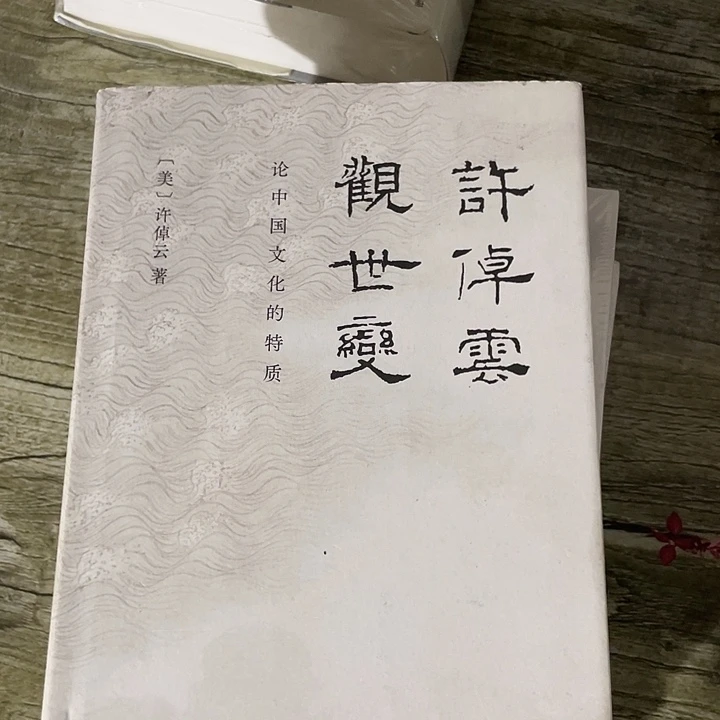 許倬雲
觀世變
论中国文化的特质
〔美〕许倬云 著